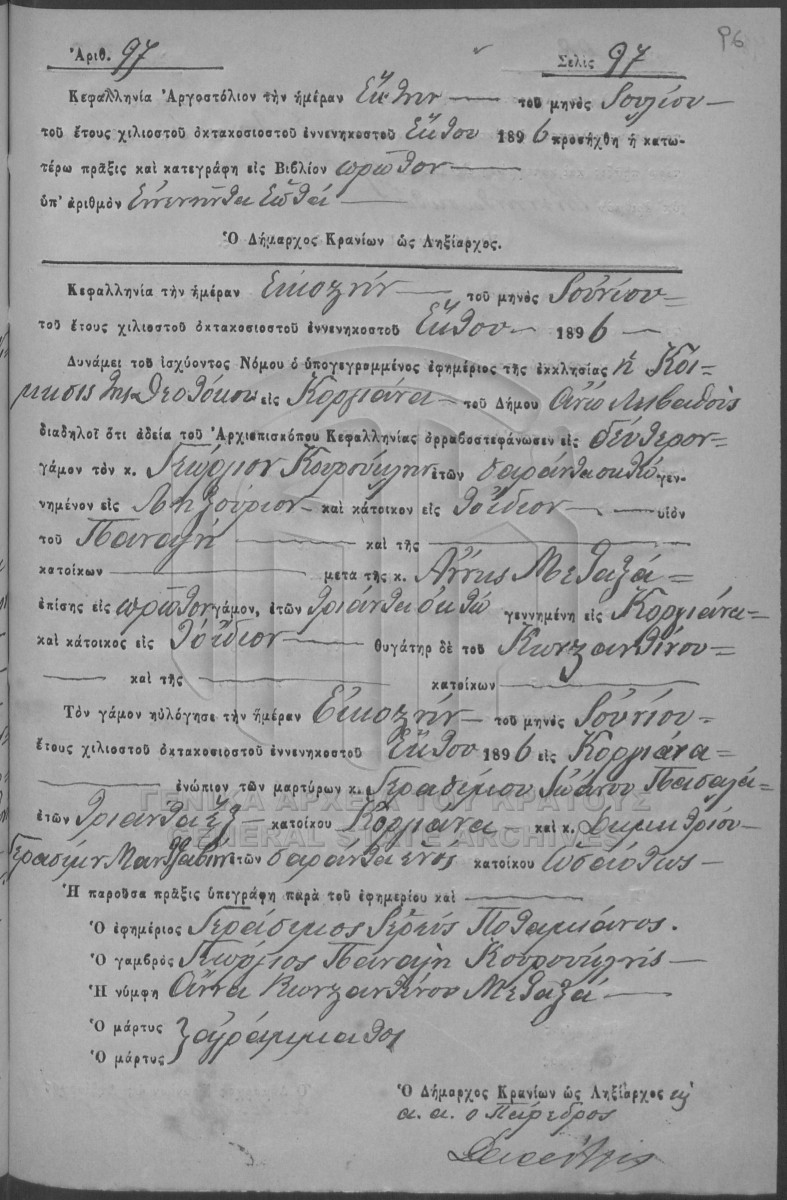 96
Ἀριθ. 97 Σελὶς 97
Κεφαλληνία Ἀργοστόλιον τὴν ἡμέραν Ἕκτην τοῦ μηνὸς Ἰουλίου
τοῦ ἔτους χιλιοστοῦ ὀκτακοσιοστοῦ ἐννενηκοστοῦ Ἕκτου 1896 προσήχθη ἡ κατω-
τέρω πρᾶξις καὶ κατεγράφη εἰς Βιβλίον πρῶτον
ὑπ' ἀριθμὸν Ἐννενῆντα ἑπτά
Ὁ Δήμαρχος Κρανίων ὡς Ληξίαρχος.
Κεφαλληνία τὴν ἡμέραν Εἰκοστὴν τοῦ μηνὸς Ἰουνίου
τοῦ ἔτους χιλιοστοῦ ὀκτακοσιοστοῦ ἐννενηκοστοῦ Ἕκτου 1896
Δυνάμει τοῦ ἰσχύοντος Νόμου ὁ ὑπογεγραμμένος ἐφημέριος τῆς ἐκκλησίας ἡ Κοί-
μησις τῆς Θεοτόκου εἰς Κοργιάνα τοῦ Δήμου Ἄνω Λειβαθοῦς
διαδηλοῖ ὅτι ἀδεία τοῦ Ἀρχιεπισκόπου Κεφαλληνίας ἀρραβοστεφάνωσεν εἰς δεύτερον
γάμον τὸν κ. Γεώργιον Κουρούκλην ἐτῶν σαράντα οκτώ γεν-
νημένον εἰς Ληξούριον καὶ κάτοικον εἰς τὸ ἴδιον υἱὸν
τοῦ Παναγῆ καὶ τῆς
κατοίκων μετὰ τῆς κ. Ἄννης Μεταξᾶ
ἐπίσης εἰς πρῶτον γάμον, ἐτῶν τριάντα ὀκτώ γεννημένη εἰς Κοργιάνα
καὶ κάτοικος εἰς τὸ ἴδιον θυγάτηρ δὲ τοῦ Κωνσταντίνου
καὶ τῆς κατοίκων
Τὸν γάμον ηὐλόγησε τὴν ἡμέραν Εἰκοστὴν τοῦ μηνὸς Ἰουνίου
ἔτους χιλιοστοῦ ὀκτακοσιοστοῦ ἐννενηκοστοῦ Ἕκτου 1896 εἰς Κοργιάνα
ἐνώπιον τῶν μαρτύρων κ. Γερασίμου Ἰωάννου
ἐτῶν τριάντα ἕξ κατοίκου Κοργιάνα καὶ κ. Δημητρίου
Γερασίμου ἐτῶν σαράντα ἑνός κατοίκου ὡσαύτως
Ἡ παροῦσα πρᾶξις ὑπεγράφη παρὰ τοῦ ἐφημερίου καὶ
Ὁ ἐφημέριος Γεράσιμος Ἱερεὺς Ποταμιάνος.
Ὁ γαμβρὸς Γεώργιος Παναγῆ Κουρούκλης
Ἡ νύμφη Ἄννα Κωνσταντίνου Μεταξᾶ
Ὁ μάρτυς ἀγράμματοι
Ὁ μάρτυς
Ὁ Δήμαρχος Κρανίων ὡς Ληξίαρχος
α. α. ο Πάρεδρος
ΓΕΝΙΚΑ ΑΡΧΕΙΑ ΤΟΥ ΚΡΑΤΟΥΣ
GENERAL STATE ARCHIVES